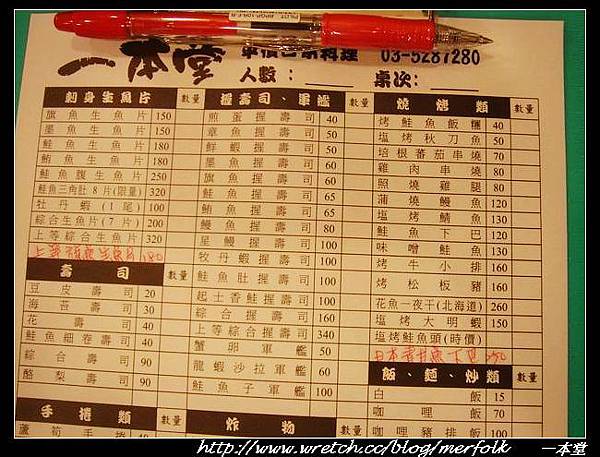 一本堂
03-5287280
人數：
桌次：
刺身生魚片 數量
旗魚生魚片 150
墨魚生魚片 150
鮭魚生魚片 180
鮪魚生魚片 180
鮭魚腹生魚片 250
鮭魚三角肚8片(限量) 320
牡丹蝦(1尾) 100
綜合生魚片(7片) 200
上等綜合生魚片 320
壽司 數量
豆皮壽司 20
海苔壽司 30
花壽司 40
鮭魚細卷壽司 40
綜合壽司 90
酪梨壽司 90
手捲類 數量
蘆筍手捲
握壽司、軍艦 數量
煎蛋握壽司 40
章魚握壽司 50
鮮蝦握壽司 50
墨魚握壽司 50
旗魚握壽司 60
鮭魚握壽司 65
鮪魚握壽司 65
鰻魚握壽司 80
星鰻握壽司 100
牡丹蝦握壽司 100
鮭魚肚握壽司 100
起士香鮭握壽司 100
綜合握壽司 160
上等綜合握壽司 340
蟹卵軍艦 50
龍蝦沙拉軍艦 60
鮭魚子軍艦 100
炸物 數量
燒烤類 數量
烤鮭魚飯糰 40
塩烤秋刀魚 50
培根蕃茄串燒 70
雞肉串燒 80
照燒雞腿 80
蒲燒鰻魚 120
塩烤鯖魚 130
鮭魚下巴 120
味噌鮭魚 130
烤牛小排 160
烤松板豬 160
花魚一夜干(北海道) 260
塩烤大明蝦 150
塩烤鮭魚頭(時價)
飯、麵、炒類 數量
白飯 15
咖哩飯 70
咖哩豬排飯 100
http://www.wretch.cc/blog/merfolk 一本堂